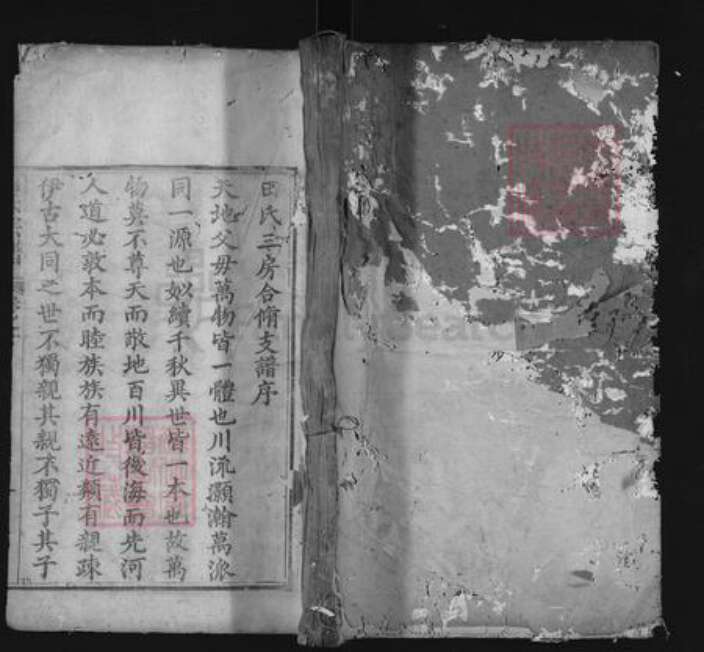 田氏三房合脩支譜序
天地父毋萬物皆一體也川流灝瀚萬派
同一源也姒續千秋異世皆一本也故萬
物莫不尊天而敬地百川皆後海而先河
人道必敦本而睦族族有遠近類有親疎
伊古大同之世不獨親其親不獨子其子